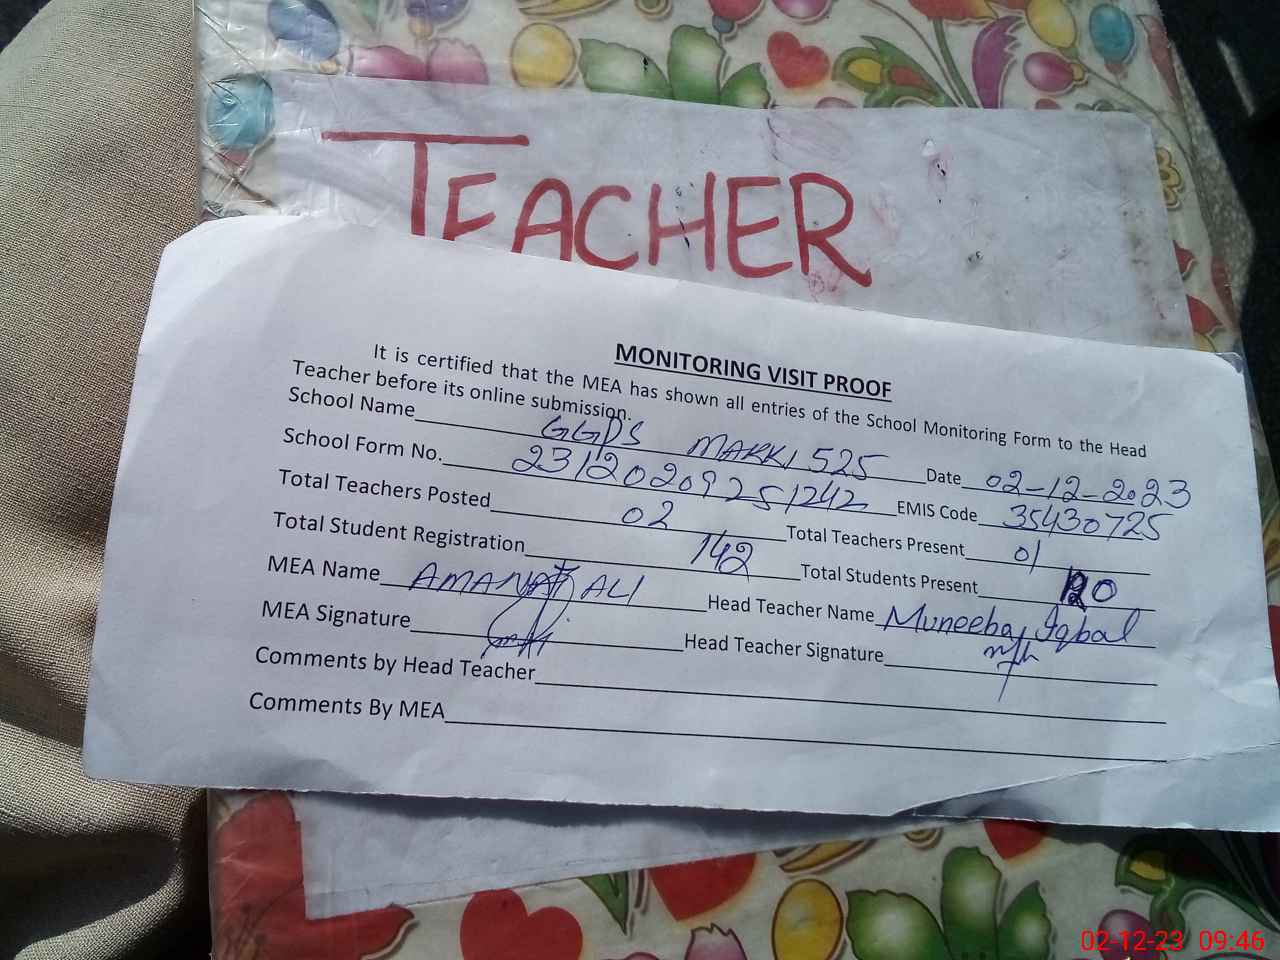 TEACHER
MONITORING VISIT PROOF
It is certified that the MEA has shown all entries of the School Monitoring Form to the Head
Teacher before its online submission.
School Name GGPS MARKI 525 Date 02-12-2023
School Form No. 23120209251242 EMIS Code 35430725
Total Teachers Posted 02 Total Teachers Present 01
Total Student Registration 142 Total Students Present 120
MEA Name AMANAT ALI Head Teacher Name Muneeba Iqbal
MEA Signature Head Teacher Signature
Comments by Head Teacher
Comments By MEA
02-12-23 09:46